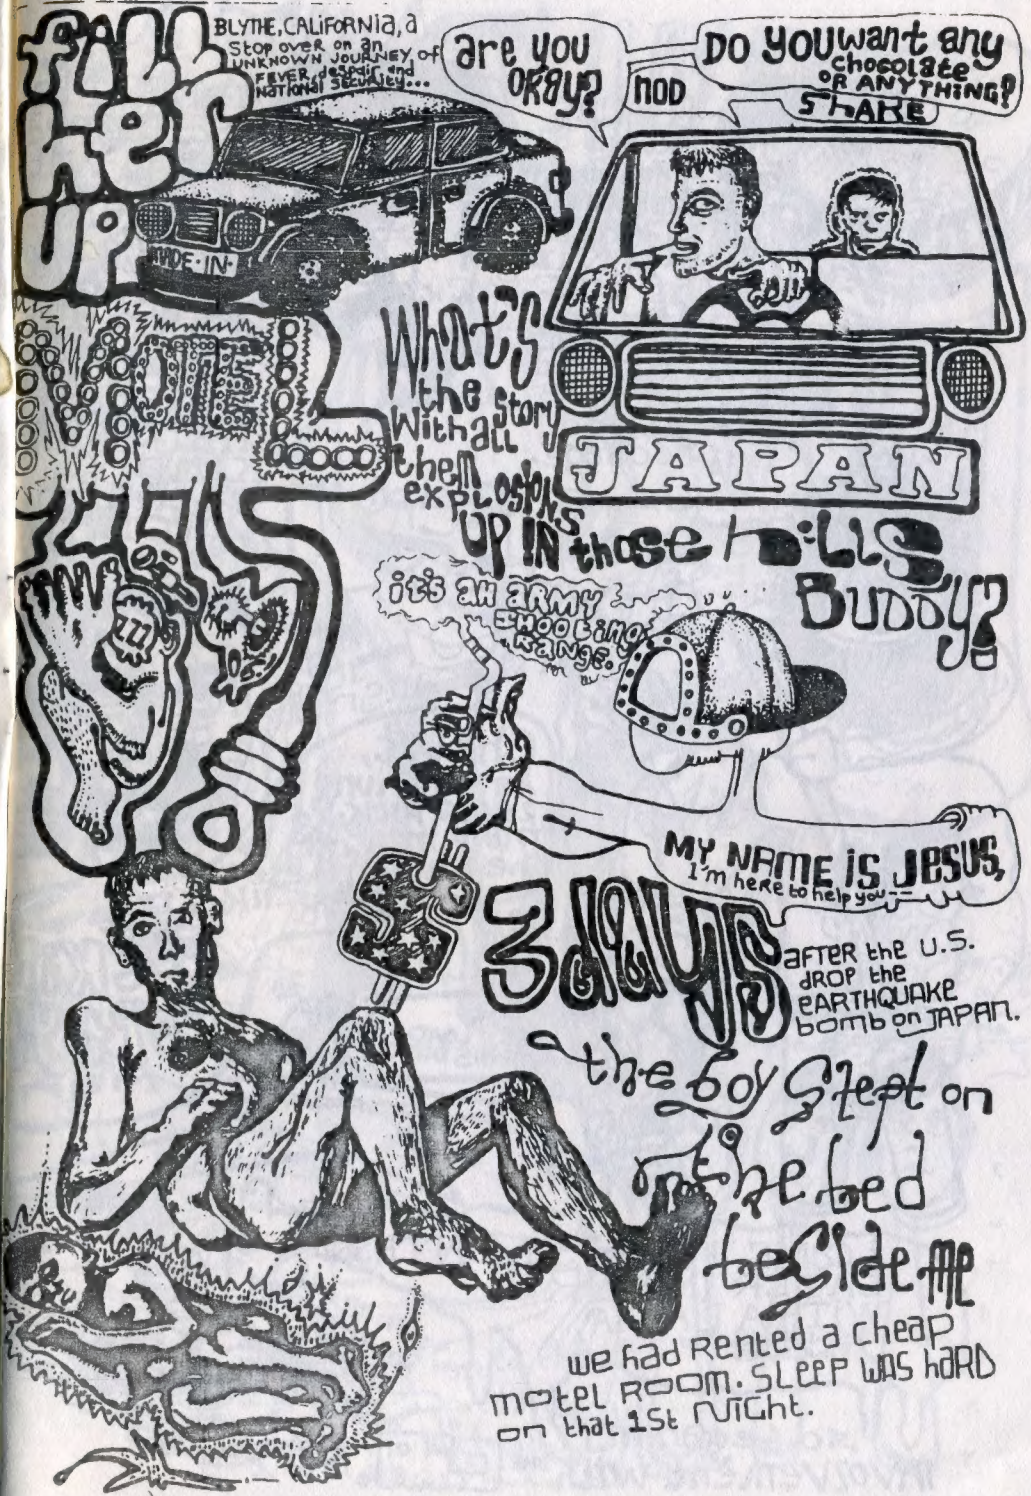 fiLL
her
UP
BLYTHE, CALiFORNia, a
Stop over on an
UNKNOWN JOURNEY, of
FEVER, despair and
National Security...
are you
okay?
NOD
DO YOU want any
chocolate
OR ANYTHING?
SHAKE
MADE·IN·
JAPAN
MOTEL
What's
the story
With all
them
explosions
UP IN those hills,
BUDDY?
it's an ARMY
SHOOting
Range.
MY NAME iS JESUS,
I'm here to help you
3 days
AFTER the U.S.
DROP the
eARTHQUAKE
bomb on JAPAN.
the boy Slept on
the bed
beSide me
we had Rented a cheap
motel ROOM. SLEEP WAS hARD
on that 1St NIGht.